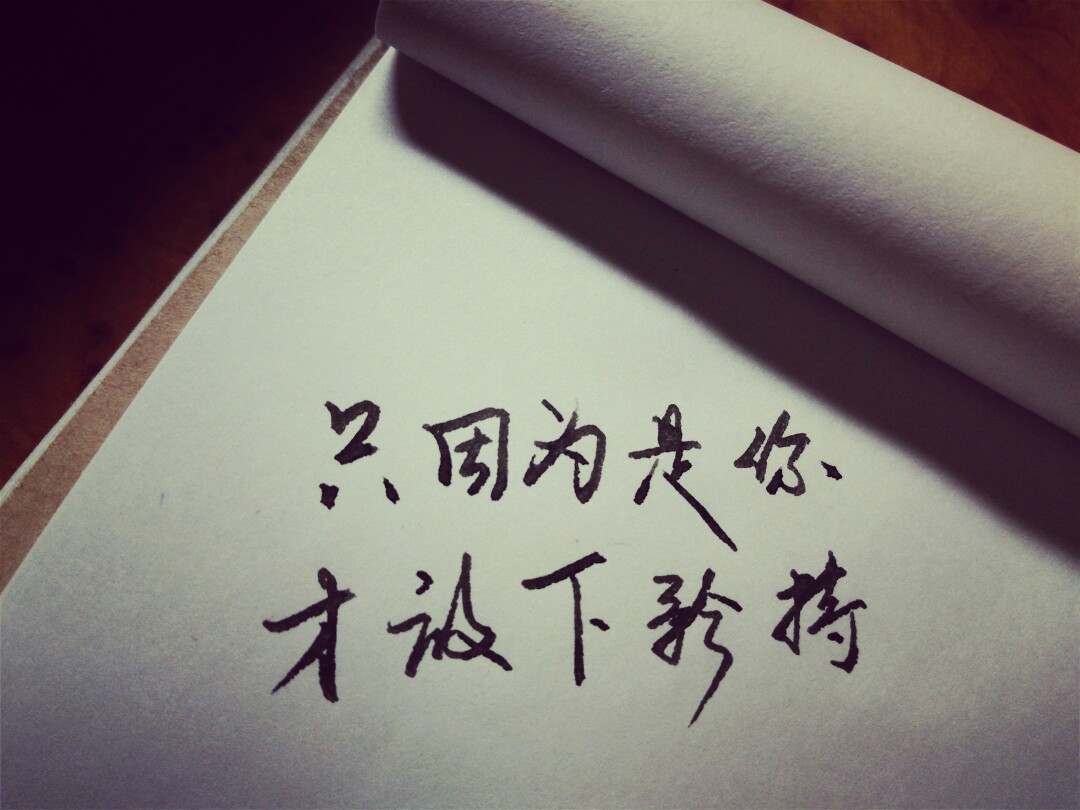 只因为是你
才放下矜持